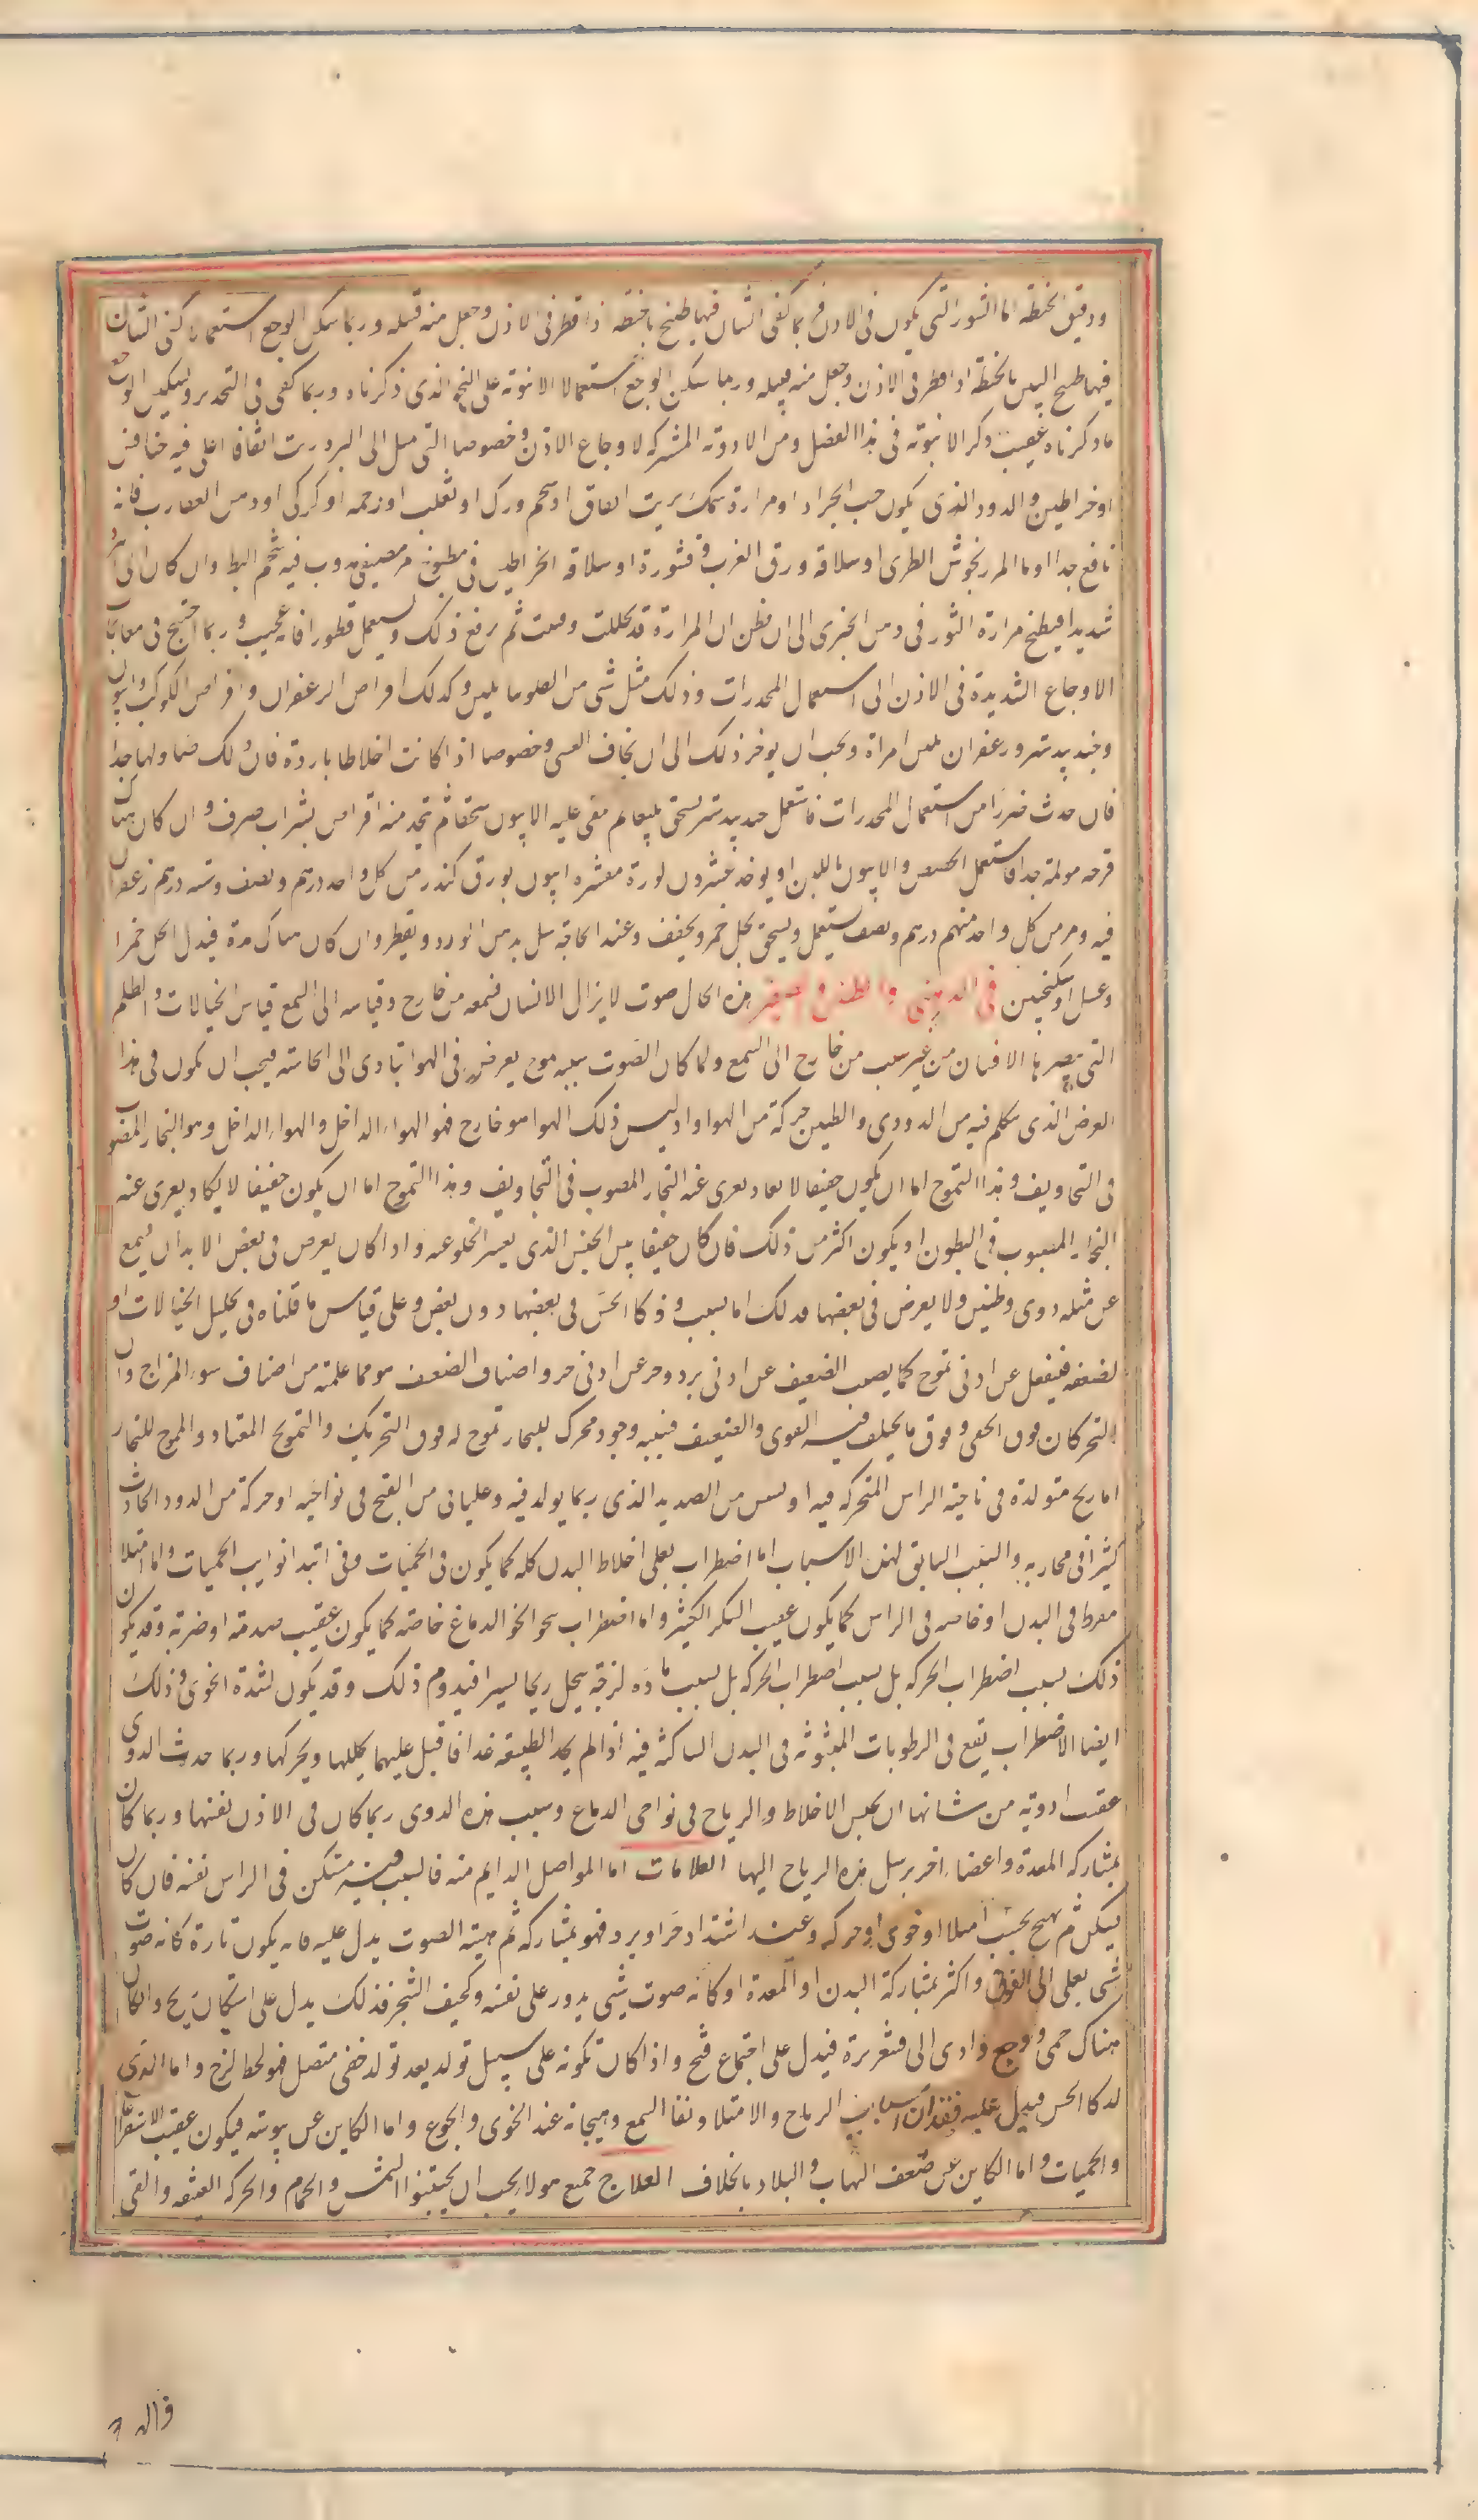 ودقيق الحنطة اما البثور التي يكون في الاذن فربما كفى التيان فيها طبيخ بالحنطة اذا قطر في الاذن وجعل منه فتيله وربما سكن الوجع استعمالنا كفى التيان
فيها طبيخ التين بالحنطة اذا قطر في الاذن وجعل منه فتيله وربما سكن الوجع استعمالا الانبوبة على النحو الذي ذكرناه وربما كفى في التخدير وتسكين الوجع
ما ذكرناه عقيب ذكر الانبوبة في هذا الفصل ومن الادوية المشتركة لاوجاع الاذن وخصوصا التي ميل الى البرد زيت انفاق اغلى فيه خنافس
او خراطين والدود الذي يكون حب الجراد او مرارة سمك بزيت انفاق او شحم ورل او ثعلب او رخمه او كركي او دمن العقارب فانه
نافع جدا او ماء المرزنجوش الطرى او سلاقة ورق الغرب وقشوره او سلاقه الخراطين في مطبوخ مر مصيفى يذوب فيه شحم البط وان كان الالم
شديدا فيطبخ مرارة الثور في دهن الخيرى الى ان يظن ان المرارة قد تحللت وفنيت ثم يرفع ذلك ويستعمل قطورا فانه عجيب وربما احتيج في معالجات
الاوجاع الشديدة في الاذن الى استعمال المخدرات وذلك مثل شى من الفلونيا بلبن وكذلك اقراص الزعفران واقراص الكوكب وافيون
وجندبيدستر وزعفران بلبن امراة ويجب ان يوخر ذلك الى ان يخاف الغشي وخصوصا اذا كانت اخلاطا باردة فان ذلك ضار لها جدا
فان حدث ضرر من استعمال المخدرات فاستعمل جندبيدستر يسحق بليغا ثم يلقى عليه الافيون سحقا ثم يتخذ منه اقراص بشراب صرف وان كان هناك
قرحه مولمة جدا فاستعمل الحضض والافيون باللبن او يوخذ عشرون لوزة مقشره افيون بورق كندر من كل واحد درهم ونصف وسته درهم زعفران
فيه ومر من كل واحد منهم درهم ونصف يستعمل ويسحق بخل خمر ويجفف وعند الحاجة يبل بدهن الورد ويقطر وان كان هناك مدة فبدل الخل خمرا
وعسل او سكنجبين في الدوى والطنين والصفير هذه الحال صوت لا يزال الانسان يسمعه من خارج وقياسه الى السمع قياس الخيالات والظلم
التي يبصر بها الانسان من غير سبب من خارج الى السمع ولما كان الصوت سببه موج يعرض في الهوا يتادى الى الحاسة فيجب ان يكون في هذا
العرض الذي نتكلم فيه من الدودى والطنين حركة من الهوا واذ ليس ذلك الهوا هو خارج فهو الهواء الداخل والهواء الداخل وهو البخار المصبوب
في التجاويف وهذا التموج اما ان يكون خفيفا لا يكاد يعرى عنه البخار المصبوب في التجاويف وهذا التموج اما ان يكون خفيفا لا يكاد يعرى عنه
البخار المصبوب في البطون او يكون اكثر من ذلك فان كان خفيفا ليس الجنس الذي يعسر الخلو عنه واذا كان يعرض في بعض الابدان يسمع
عن مثله دوى وطنين ولا يعرض في بعضها فذلك اما بسبب وذكا الحس في بعضها دون بعض وعلى قياس ما قلناه في تحليل الخيالات او
لضعفه فينفعل عن ادنى تموج كما يصيب الضعيف عن ادنى برد وحر عن ادنى حر واصناف الضعف هو مما علمته من اصناف سوء المزاج وان
التحرك ان فوق الخفى وفوق ما يختلف فيه القوى والضعيف فسببه وجود محرك للبخار تموج له فوق التحريك والتمويج المعتاد والمموج للبخار
اما ريح متولدة في ناحية الراس المتحركة فيه او نشيش من الصديد الذي ربما يولد فيه وغليانى من القيح في نواحيه او حركة من الدود الحادث
كثيرا في مجاريه والسبب السابق لهذه الاسباب اما اضطراب يغلى اخلاط البدن كله كما يكون في الحميات وفي ابتدا نوايب الحميات واما امتلا
مفرط في البدن او خاصه في الراس كما يكون عقيب السكر الكثير واما اضطراب نحو الخو الدماغ خاصه كما يكون عقيب صدمة او ضربة وقد يكون
ذلك بسبب اضطراب الحركه بل بسبب اضطراب الحركه بل بسبب ماده لزجة يتحلل ريحا يسيرا فيدوم ذلك وقد يكون لشدة الخوى وذلك
ايضا الاضطراب يقع في الرطوبات المبثوثه في البدن الساكنة فيه اذا لم يجد الطبيعة غذا فاقبل عليهما يحللها ويحركها وربما حدث الدوى
عقب ادوية من شانها ان يحبس الاخلاط والرياح في نواحى الدماغ وسبب هذه الدوى ربما كان في الاذن نفسها وربما كان
بمشاركه المعدة واعضاء اخر يرسل هذه الرياح اليها العلامات اما المواصل الدايم منه فالسبب فيه متمكن في الراس نفسه فان كان
يسكن ثم يهيج بحسب امتلا او خوى او حركه وعند اشتداد حر او برد فهو بمشاركه ثم هيئة الصوت يدل عليه فانه يكون تارة كانه صوت
شى يغلى الى الفوق واكثره بمشاركة البدن او المعدة او كانه صوت شي يدور على نفسه وكحيف الشجر فذلك يدل على استكان ريح وان كان
هناك حمى ووجع وادى الى قشعريرة فيدل على اجتماع قيح واذا كان تكونه على سبيل تولد بعد تولد خفى متصل فهو لخلط لزج واما الذي
لذكا الحس فيدل عليه فقدان اسباب الرياح والامتلا ونقا السمع وهيجانه عند الخوى والجوع واما الكاين عن يبوسة فيكون عقيب الاستفراغ
والحميات واما الكاين عن ضعف التهاب والبلاد بالخلاف العلاج جميع هولا يجب ان يجتنبوا الشمس والحمام والحركه العنيفه والقى